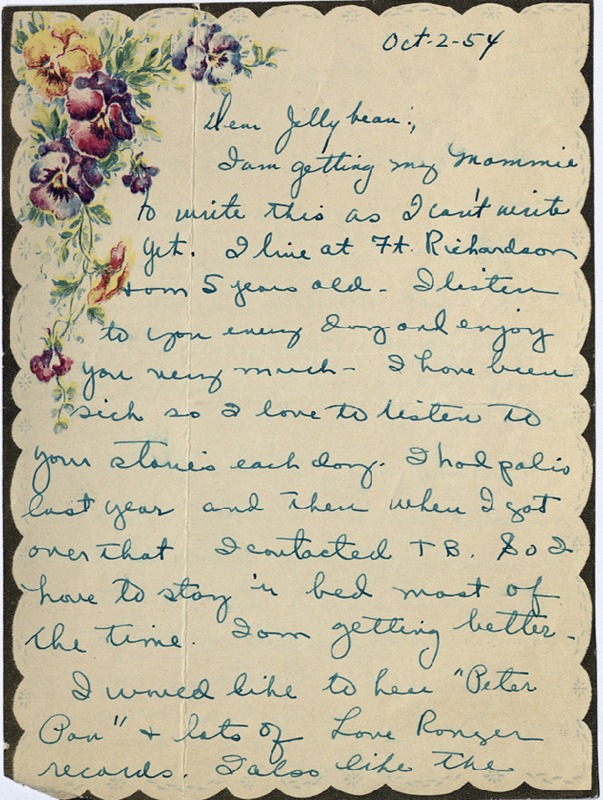 Oct-2-54
Dear Jellybean:,
I am getting my Mommie
to write this as I can't write
yet. I live at Ft. Richardson
+ am 5 years old - I listen
to you every day and enjoy
you very much - I have been
sick so I love to listen to
your stories each day. I had polio
last year and then when I got
over that I contacted TB. So I
have to stay in bed most of
the time. I am getting better.
I would like to hear "Peter
Pan" + lots of Lone Ranger
records. I also like the